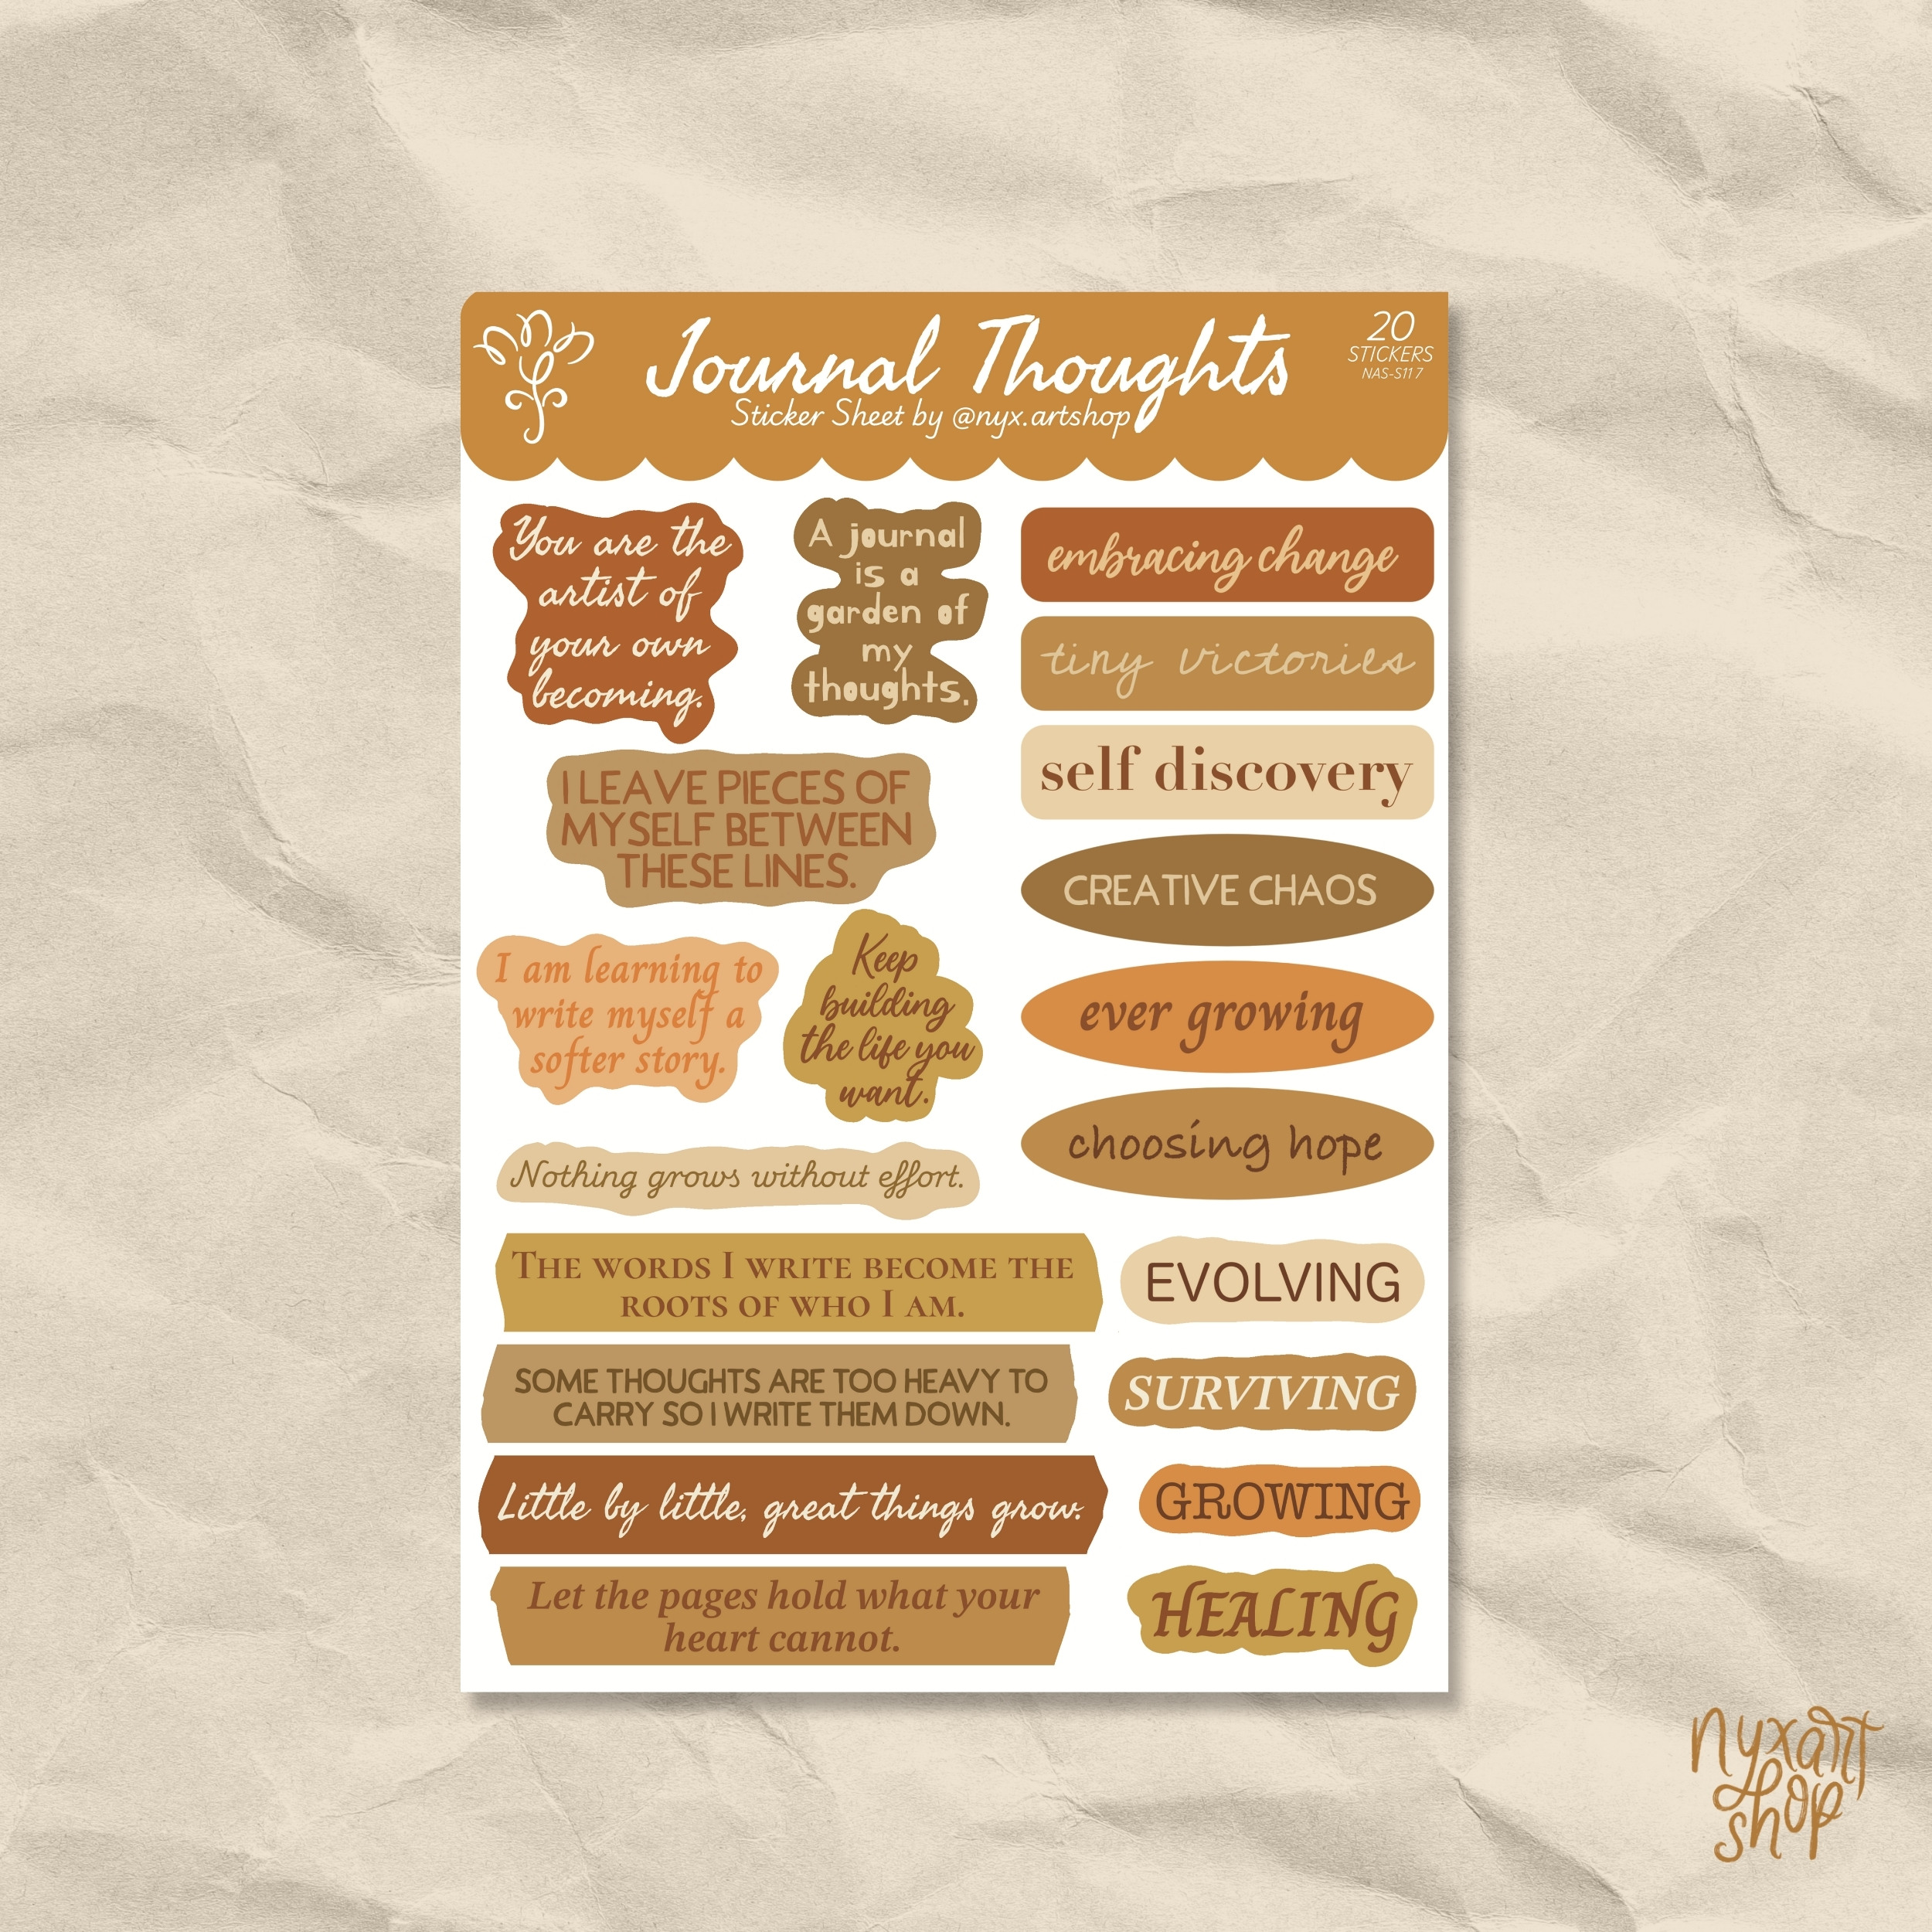 Journal Thoughts
Sticker Sheet by @nyx.artshop
20
STICKERS
NAS-S117
You are the
artist of
your own
becoming.
A journal
is a
garden of
my
thoughts.
I LEAVE PIECES OF
MYSELF BETWEEN
THESE LINES.
I am learning to
write myself a
softer story.
Keep
building
the life you
want.
Nothing grows without effort.
THE WORDS I WRITE BECOME THE
ROOTS OF WHO I AM.
SOME THOUGHTS ARE TOO HEAVY TO
CARRY SO I WRITE THEM DOWN.
Little by little, great things grow.
Let the pages hold what your
heart cannot.
embracing change
tiny victories
self discovery
CREATIVE CHAOS
ever growing
choosing hope
EVOLVING
SURVIVING
GROWING
HEALING
nyxart
shop